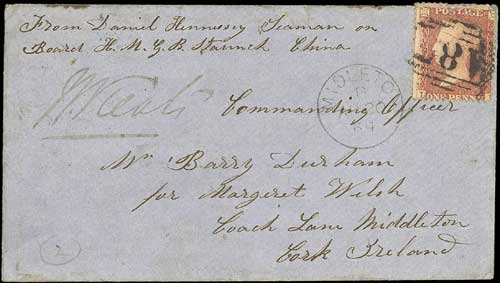 From Daniel Hennessy Seaman on
Board H. M. G. B. Staunch China
Commanding Officer
Mr Barry Durham
for Margaret Welsh
Coach Lane Middleton
Cork Ireland
MIDLETON
POSTAGE
ONE PENNY
2